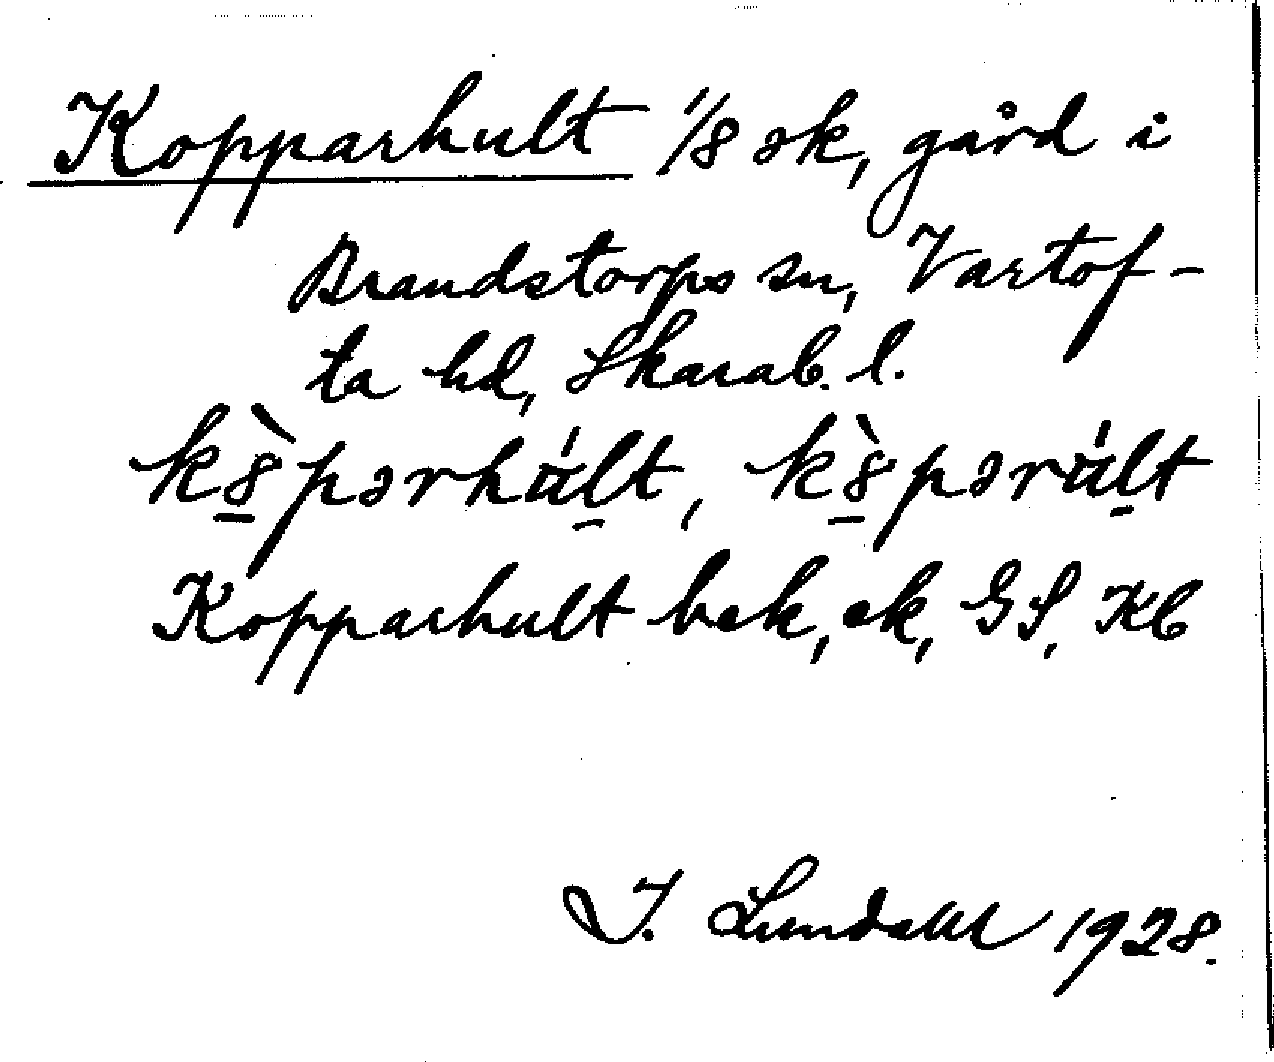 Kopparhult 1/8 sk, gård i
Brandstorps sn, Vartof-
ta hd, Skarab. l.
k8̠̀pərhúl̠t, k8̠̀pərúl̠t
Kopparhult bek, ek, GS, Kb
I. Lundahl 1928.